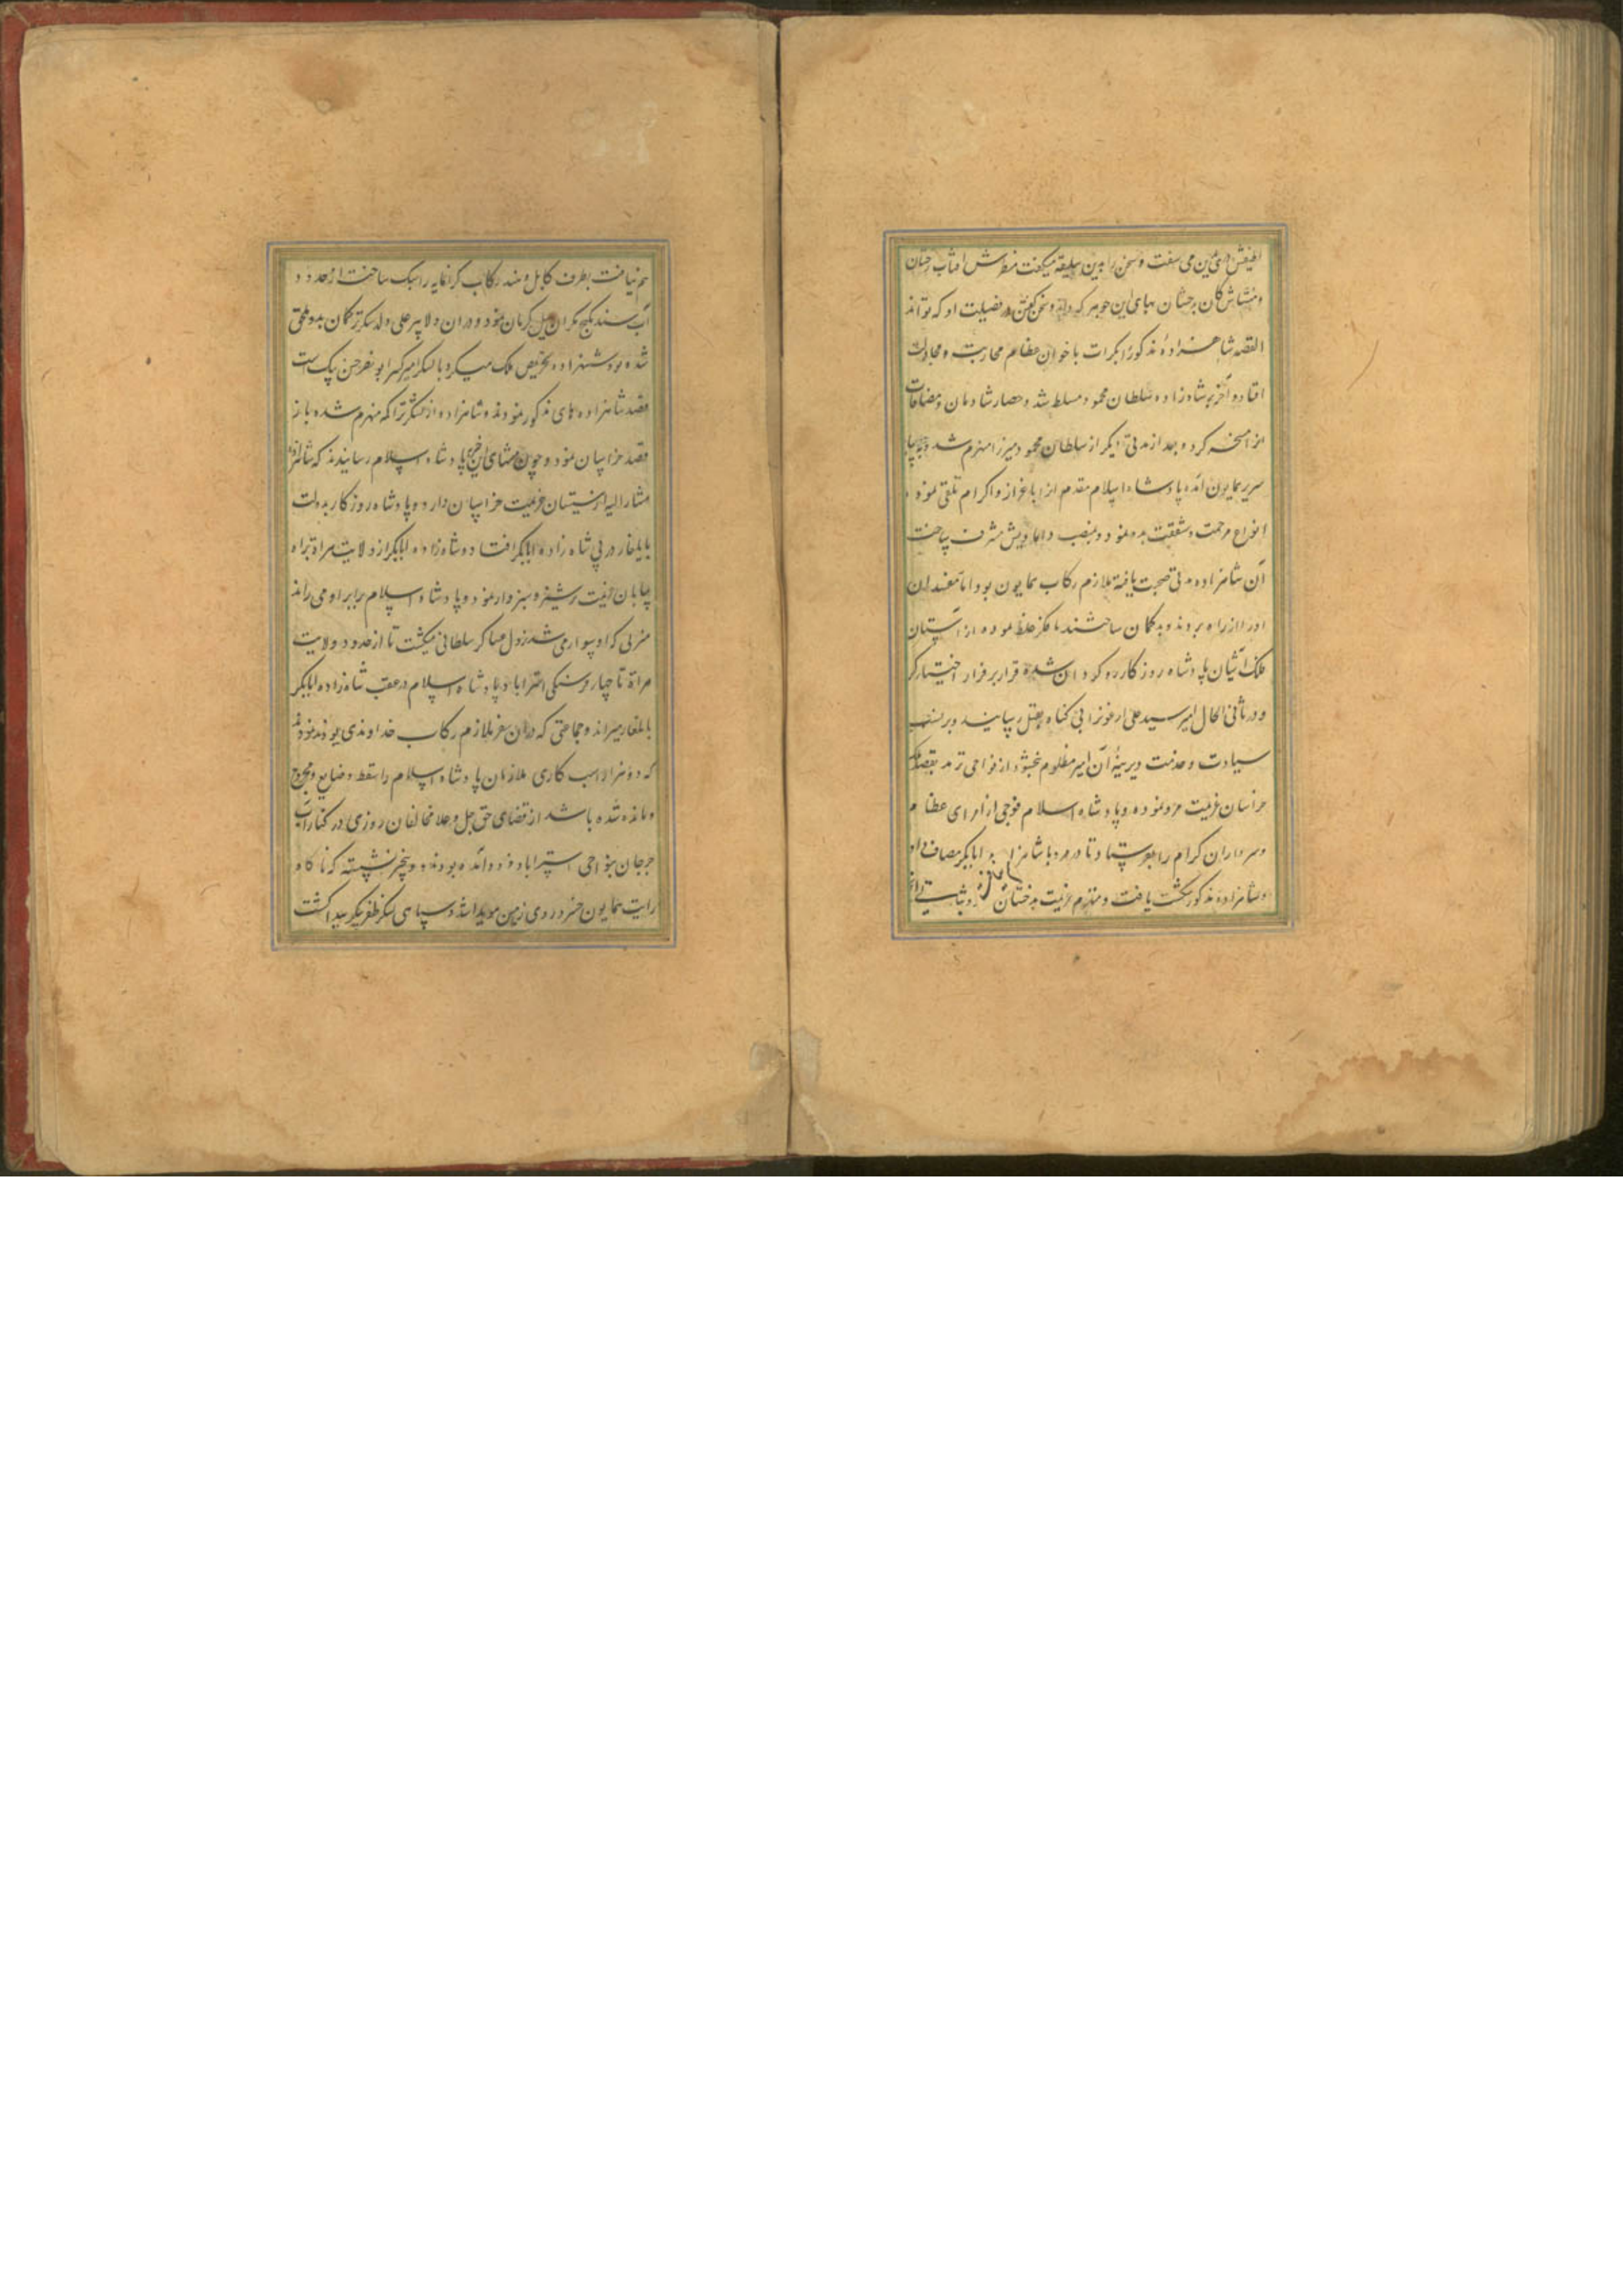 می سفت و سخن را بدین سلیقه میگفت آفتاب
کان بدخشان بهای این جوهر که داند و سخن گفتن در فضیلت او که تواند
القصه شاهزاده مذکور را بکرات با خوان عظام محاربت و مجادلت
افتاد و آخر بر شاه زاده سلطان محمود مسلط شد و حصار شادمان و مضافات
مسخر کرد و بعد از مدتی دیگر از سلطان محمود میرزا منهزم شد
سریر همایون آمد پادشاه اسلام مقدم او را باعزاز و اکرام تلقی نموده
انواع مرحمت و شفقت بدو نمود و بمنصب دامادیش مشرف ساخت
آن شاهزاده مدتی صحبت یافته ملازم رکاب همایون بود اما مفسدان
او را از راه بردند و بدکمان ساختند تا فکر غلط نموده از آستان
ملک آشیان پادشاه روزکار رو کردان شده قرار بر فرار اختیار کرد
و در ثانی الحال امیر سید علی ارغون را بی کناه بقتل رسانید و بر نسب
سیادت و خدمت دیرینه آن امیر مظلوم نبخشود از نواحی ترمد بقصد ملک
خراسان عزیمت مرو نموده و پادشاه اسلام فوجی از امرای عظام
و سرداران کرام را بفرستاد تا در مرو با شاهزاده ابابکر مصاف داد
و شاهزاده مذکور شکست یافت و منهزم عزیمت بدخشان
هم نیافت بطرف کابل و هند رکاب کرانمایه را سبک ساخت از حدود
آب سند بکیج مکران میل کرمان نمود و در ان ولا پیر علی ولد شکر ترکمان بدو ملحق
شده بود شهزاده تخریص ملک میکرد با لشکر امیر کبیر ابو نصر حسن بیک است
قصد شاهزاده های مذکور نمودند و شاهزاده از لشکر تراکمه منهزم شده باز
قصد خراسان نمود و چون این خبر بپادشاه اسلام رسانیدند که
مشار الیه از سیستان عزیمت خراسان دارد و پادشاه روزکار بدولت
بایلغار در پی شاه زاده ابابکر افتاد و شاه زاده ابابکر از ولایت هراة براه
بیابان نیت ترشیز و سبزوار نمود و پادشاه اسلام برابر او می راند
منزلی که او سوار می شد نزول عساکر سلطانی میکشت تا از حدود ولایت
هراة تا چهار فرسنکی استراباد پادشاه اسلام در عقب شاه زاده ابابکر
بایلغار میراند و جماعتی که در ان سفر ملازم رکاب خداوندی بودند
که دو هزار اسب کاری ملازمان پادشاه اسلام را سقط و ضایع و مجروح
و مانده شده باشد از قضای حق جل و علا مخالفان روزی در کنار آب
جرجان بنواحی استراباد فرود آمده بودند و بیخبر نشسته که ناکاه
رایت همایون خسرو روی زمین هویدا شد و سپاهی لشکر ظفر پیکر پیدا کشت